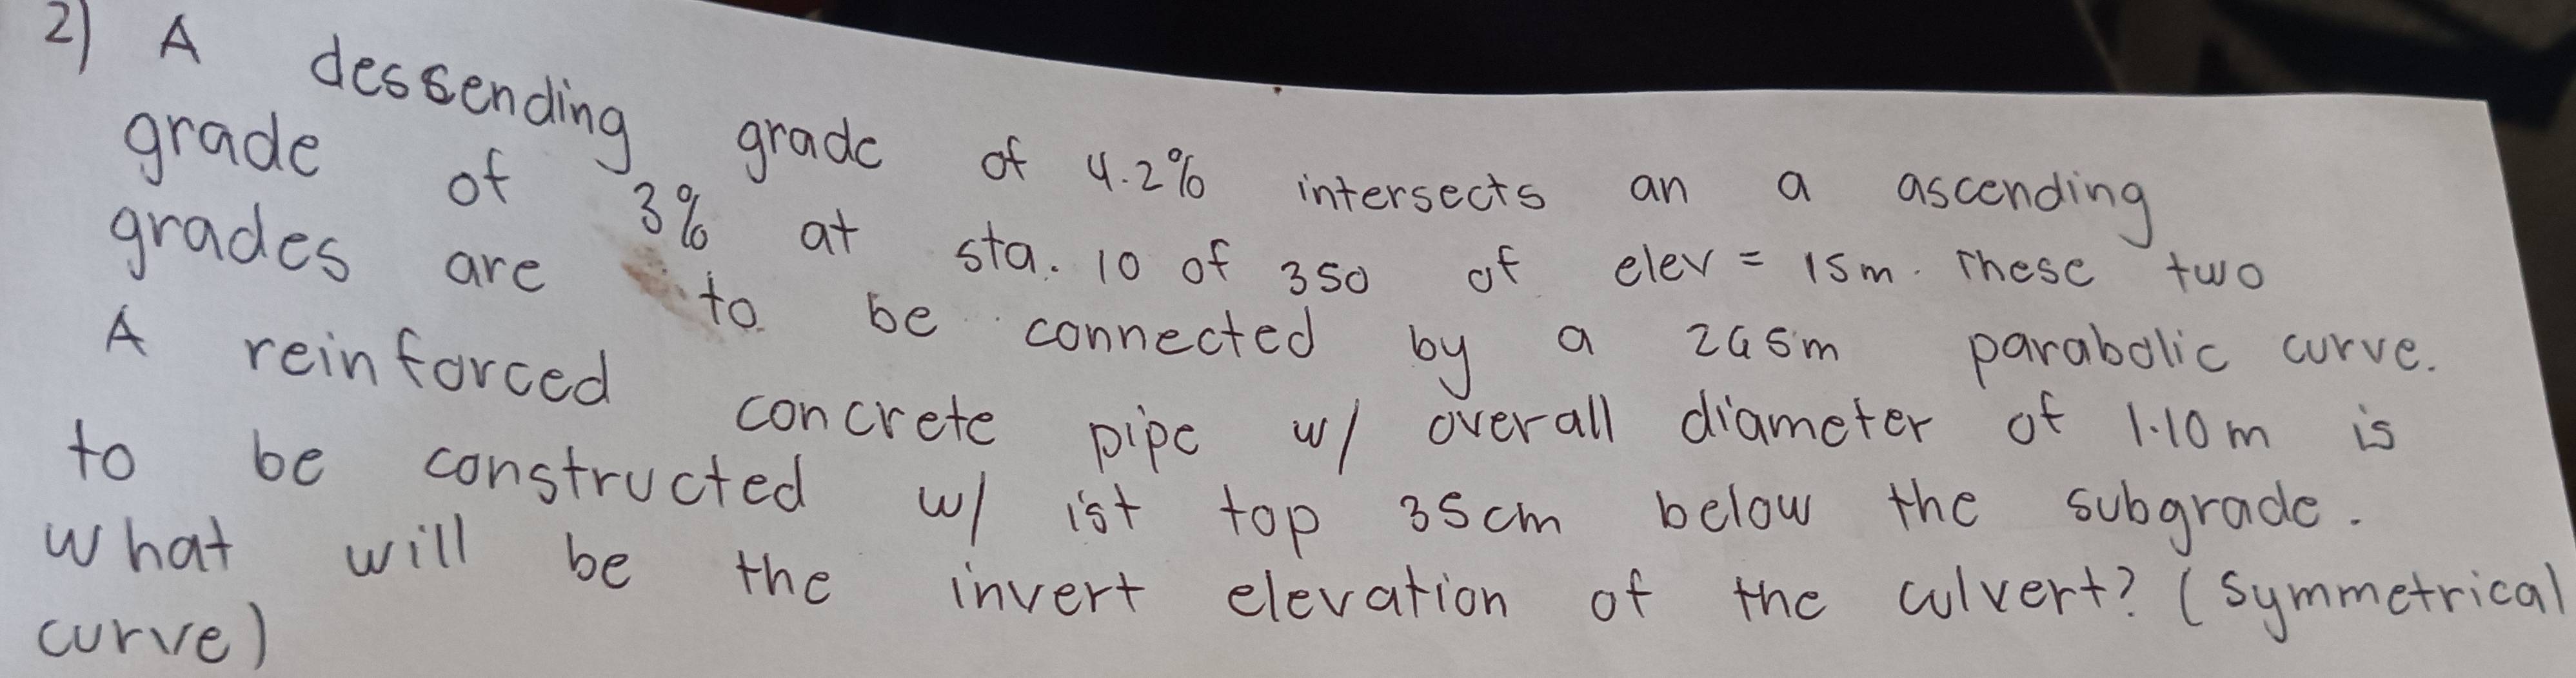 2) A dessending grade of 4.2% intersects an a ascending
grade of 3% at sta. 10 of 350 of elev = 15m. These two
grades are to be connected by a 265m parabolic curve.
A reinforced concrete pipe w/ overall diameter of 1.10m is
to be constructed w/ ist top 35cm below the subgrade.
What will be the invert elevation of the culvert? (symmetrical
curve)